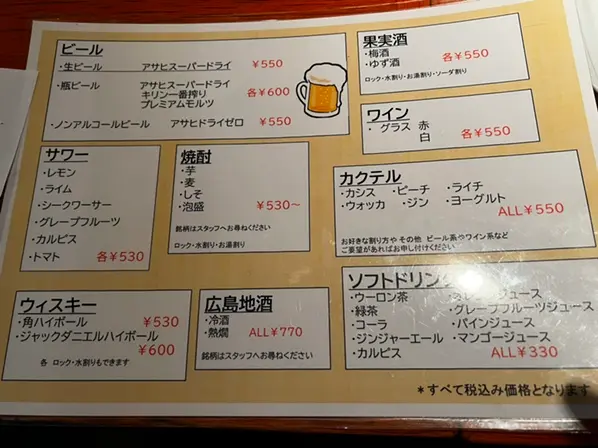 ビール
・生ビール アサヒスーパードライ ￥550
・瓶ビール アサヒスーパードライ
キリン一番搾り 各￥600
プレミアムモルツ
・ノンアルコールビール アサヒドライゼロ ￥550
果実酒
・梅酒
・ゆず酒 各￥550
ロック・水割り・お湯割り・ソーダ割り
ワイン
・グラス 赤
白 各￥550
サワー
・レモン
・ライム
・シークワーサー
・グレープフルーツ
・カルピス
・トマト 各￥530
焼酎
・芋
・麦
・しそ
・泡盛 ￥530～
銘柄はスタッフへお尋ねください
ロック・水割り・お湯割り
カクテル
・カシス ・ピーチ ・ライチ
・ウォッカ ・ジン ・ヨーグルト
ALL￥550
お好きな割り方や その他 ビール系やワイン系など
ご要望があればお申し付けください
ウィスキー
・角ハイボール ￥530
・ジャックダニエルハイボール
￥600
各 ロック・水割りもできます
広島地酒
・冷酒
・熱燗 ALL￥770
銘柄はスタッフへお尋ねください
ソフトドリンク
・ウーロン茶 ジュース
・緑茶 ・グレープフルーツジュース
・コーラ ・パインジュース
・ジンジャーエール ・マンゴージュース
・カルピス ALL￥330
＊すべて税込み価格となります